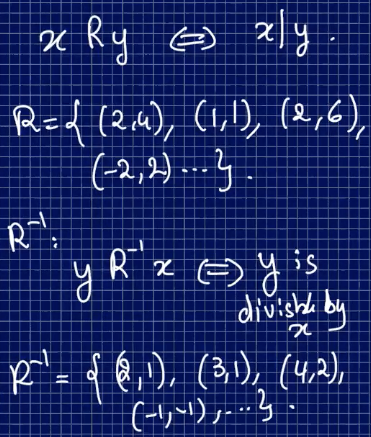 x R y ⇔ x|y.
R = { (2,4), (1,1), (2,6),
(-2,2) ... }.
R⁻¹:
y R⁻¹ x ⇔ y is
divisible by
x
R⁻¹ = { (2,1), (3,1), (4,2),
(-1,-1), ... }.